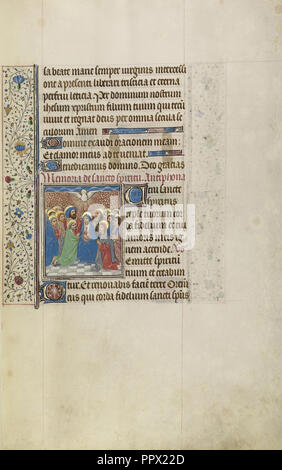 sa beate marie semper virginis intercessi
one a presenti liberari tristicia et eterna
perfrui leticia Per dominum nostrum
ihesum xpistum filium tuum qui tecum
vivit et regnat deus per omnia secula se
culorum Amen
Domine exaudi orationem meam
Et clamor meus ad te veniat
Benedicamus domino Deo gratias
Memoria de sancto spiritu Antephona
Veni sancte
spiritus
reple tuorum cor
da fidelium et tui
amoris in eis ig
nem accende Vs
Emitte spiritum
tuum et creabun
tur Et renovabis faciem terre Or
Deus qui corda fidelium sancti spiritus
alamy
PPX22D